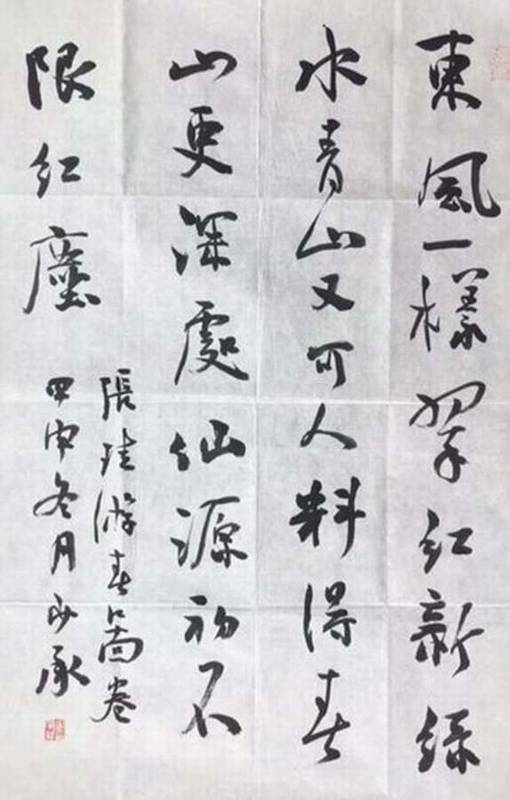 東風一樣翠紅新綠
水青山又可人料得春
山更深處仙源初不
限紅塵
張珪游春圖卷
甲申冬月承